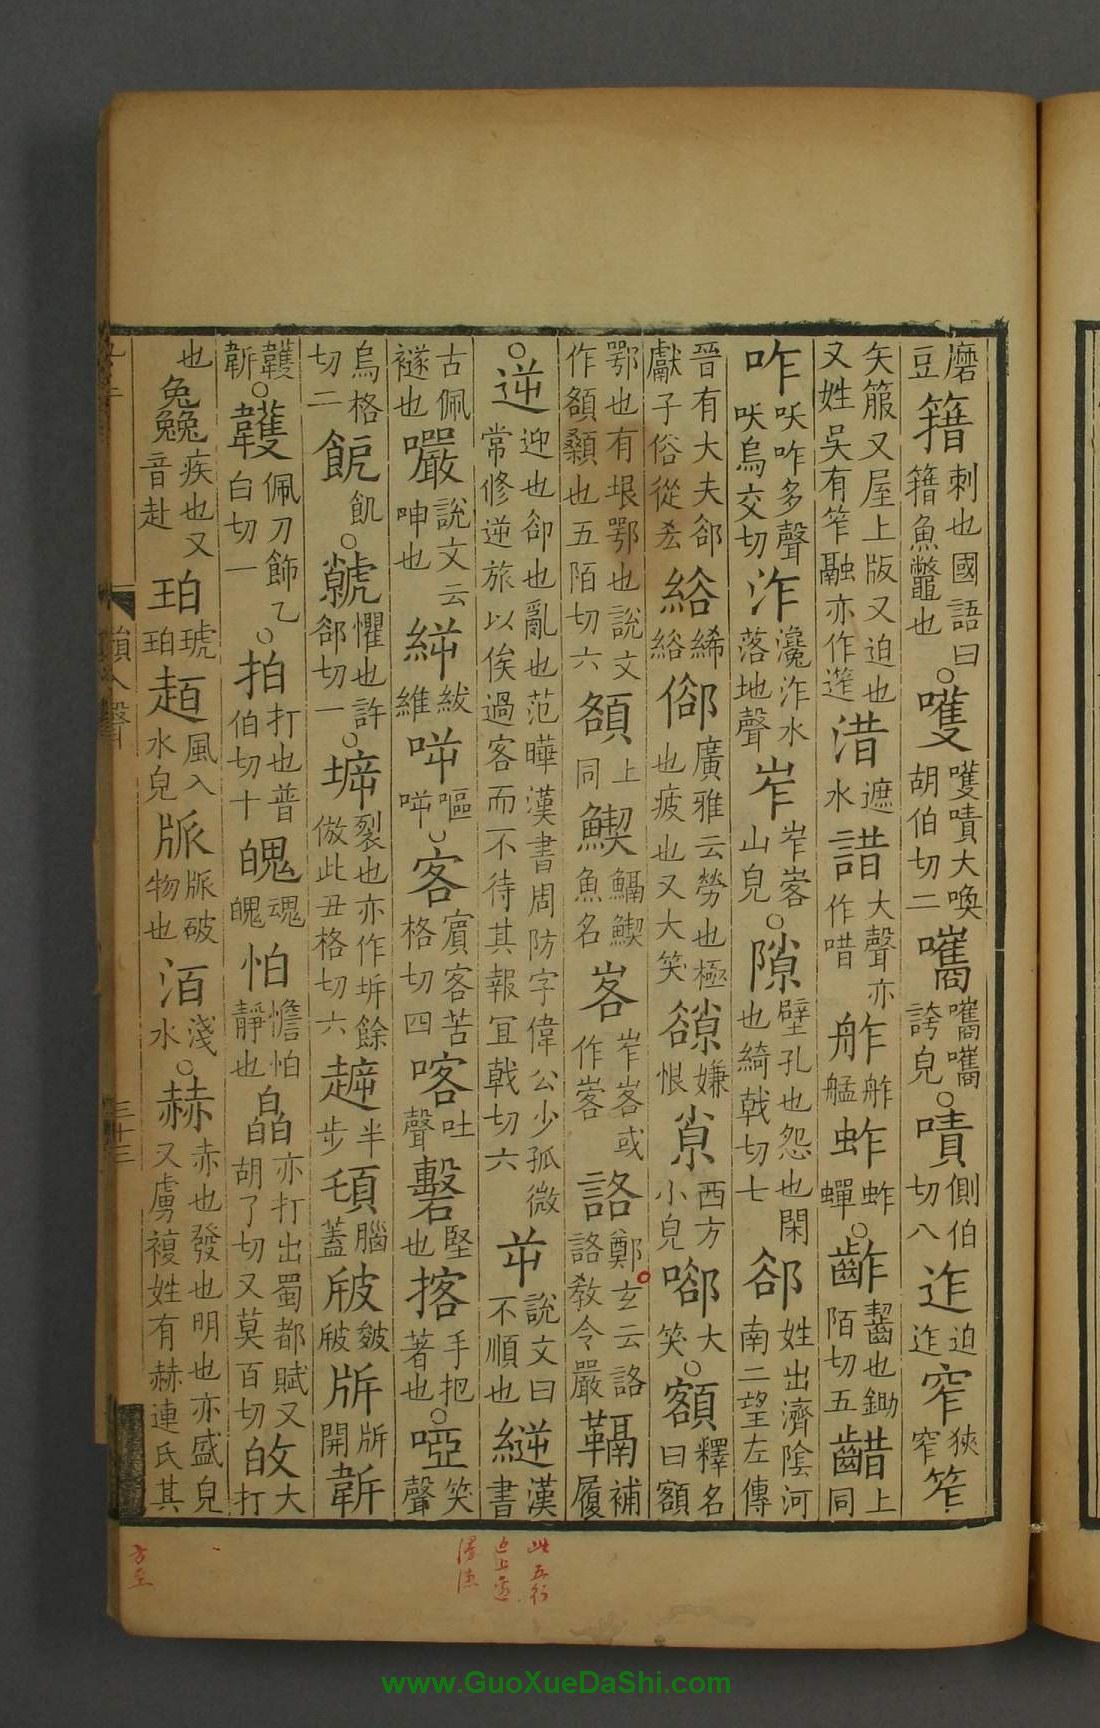 磨豆籍刺也國語曰籍魚鼈也○嚄嚄嘖大喚胡伯切二嚿嚿嚿誇皃○嘖側伯切八迮迫迮窄狹窄笮
矢箙又屋上版又迫也又姓吳有笮融亦作㳻浩遮水諎大聲亦作唶舴舴艋蚱蚱蟬○齚齧也鋤陌切五齰上同
咋㕭咋多聲㕭烏交切泎瀺泎水落地聲岝岝峉山皃○隙壁孔也怨也閑也綺戟切七郤姓出濟陰河南二望左傳
晉有大夫郤獻子俗從𠫤綌絺綌𠊬廣雅云勞也極也疲也又大笑𧮫嫌恨𡭴西方小皃㘌大笑○額釋名曰額
鄂也有垠鄂也說文作頟顙也五陌切六頟上同䱮鰏䱮魚名峉岝峉或作㟧詻鄭玄云詻詻教令嚴䩹補履
○逆迎也卻也亂也范曄漢書周防字偉公少孤微常修逆旅以俟過客而不待其報宜戟切六屰說文曰不順也縌漢書
古佩襚也㘙說文云呻也縌紱維㖸嘔㖸○客賓客苦格切四喀吐聲礊堅也揢手把著也○啞笑聲
烏格切二䬵飢○虩懼也許郤切一○㙤裂也亦作坼餘倣此丑格切六䟽半步䫉腦蓋㿭皴㿭㸞㸞開𩊅
韄𩊅○韄佩刀飾乙白切一○拍打也普伯切十魄魂魄怕憺怕靜也皛亦打出蜀都賦又胡了切又莫百切㪣大打
也㕙疾也又音赴珀琥珀䞟風入水皃𦙝𦙝破物也洦淺水○赫赤也發也明也亦盛皃又虜複姓有赫連氏其
三十三
此五行
www.GuoXueDaShi.com